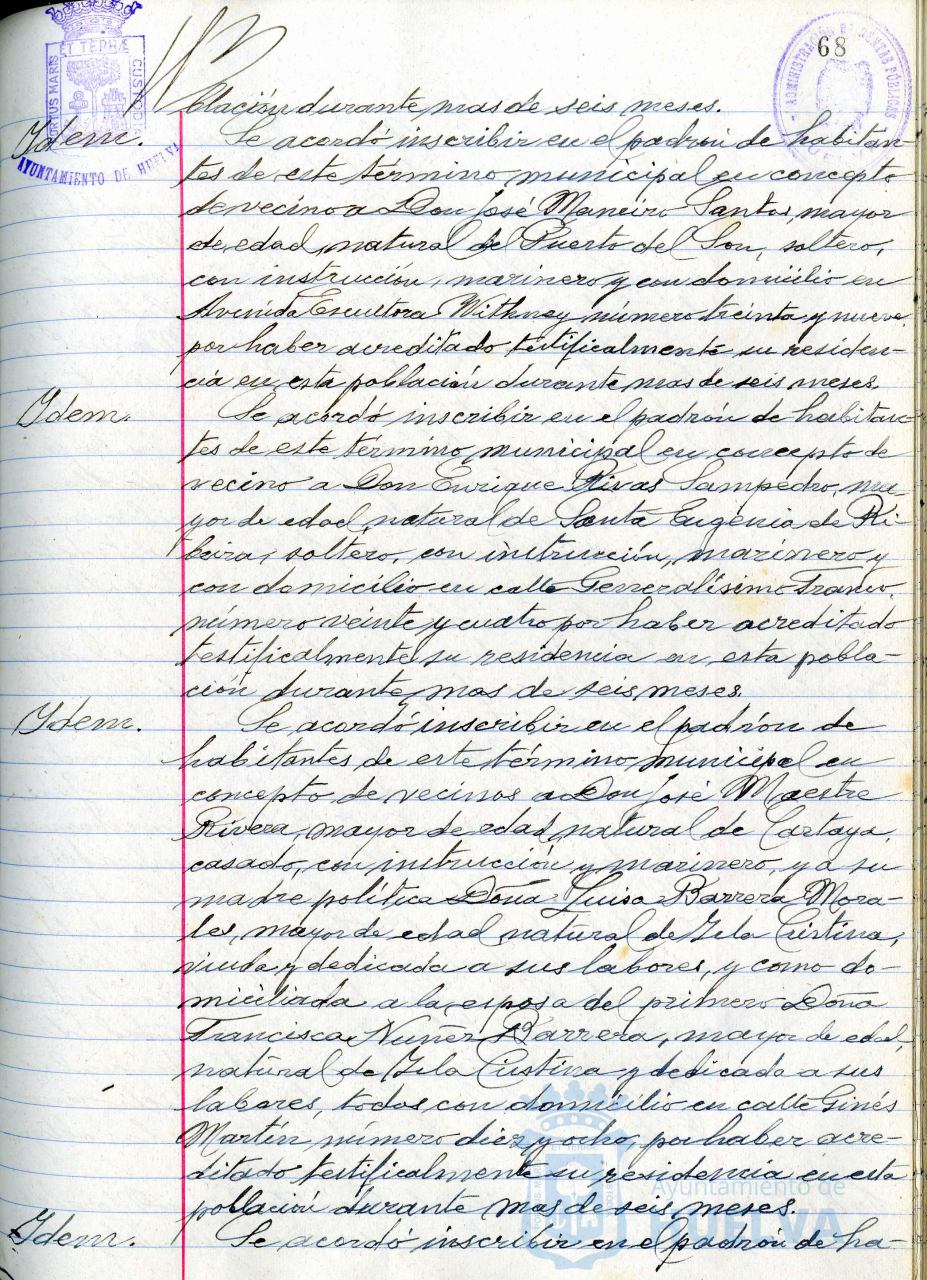 68
PORTUS MARIS ET TERRÆ CUSTODIA
AYUNTAMIENTO DE HUELVA
ADMINISTRACIÓN DE RENTAS PÚBLICAS
blación durante mas de seis meses.
Idem. Se acordó inscribir en el padrón de habitan-
tes de este término municipal en concepto
de vecino a Don José Maneiro Santos, mayor
de edad, natural del Puerto del Son, soltero,
con instrucción, marinero y con domicilio en
Avenida Escultora Withney número treinta y nueve,
por haber acreditado testificalmente su residen-
cia en esta población durante mas de seis meses.
Idem. Se acordó inscribir en el padrón de habitan-
tes de este término municipal en concepto de
vecino a Don Enrique Rivas Sampedro, ma-
yor de edad, natural de Santa Eugenia de Ri-
beira, soltero, con instrucción, marinero y
con domicilio en calle Generalísimo Franco,
número veinte y cuatro por haber acreditado
testificalmente su residencia en esta pobla-
ción durante mas de seis meses.
Idem. Se acordó inscribir en el padrón de
habitantes de este término municipal en
concepto de vecinos a Don José Maestre
Rivera, mayor de edad, natural de Cartaya,
casado, con instrucción y marinero, y a su
madre política Doña Luisa Barrera Mora-
les, mayor de edad natural de Isla Cristina,
viuda y dedicada a sus labores, y como do-
miciliada a la esposa del primero Doña
Francisca Nuñez Barrera, mayor de edad,
natural de Isla Cristina y dedicada a sus
labores, todos con domicilio en calle Ginés
Martín número diez y ocho, por haber acre-
ditado testificalmente su residencia en esta
población durante mas de seis meses.
Idem. Se acordó inscribir en el padrón de ha-
Ayuntamiento de
HUELVA